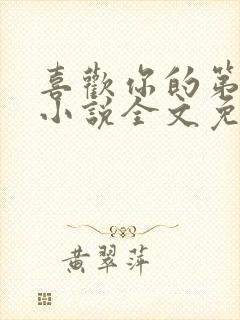 喜歡你的第
小說全文免
黃翠萍